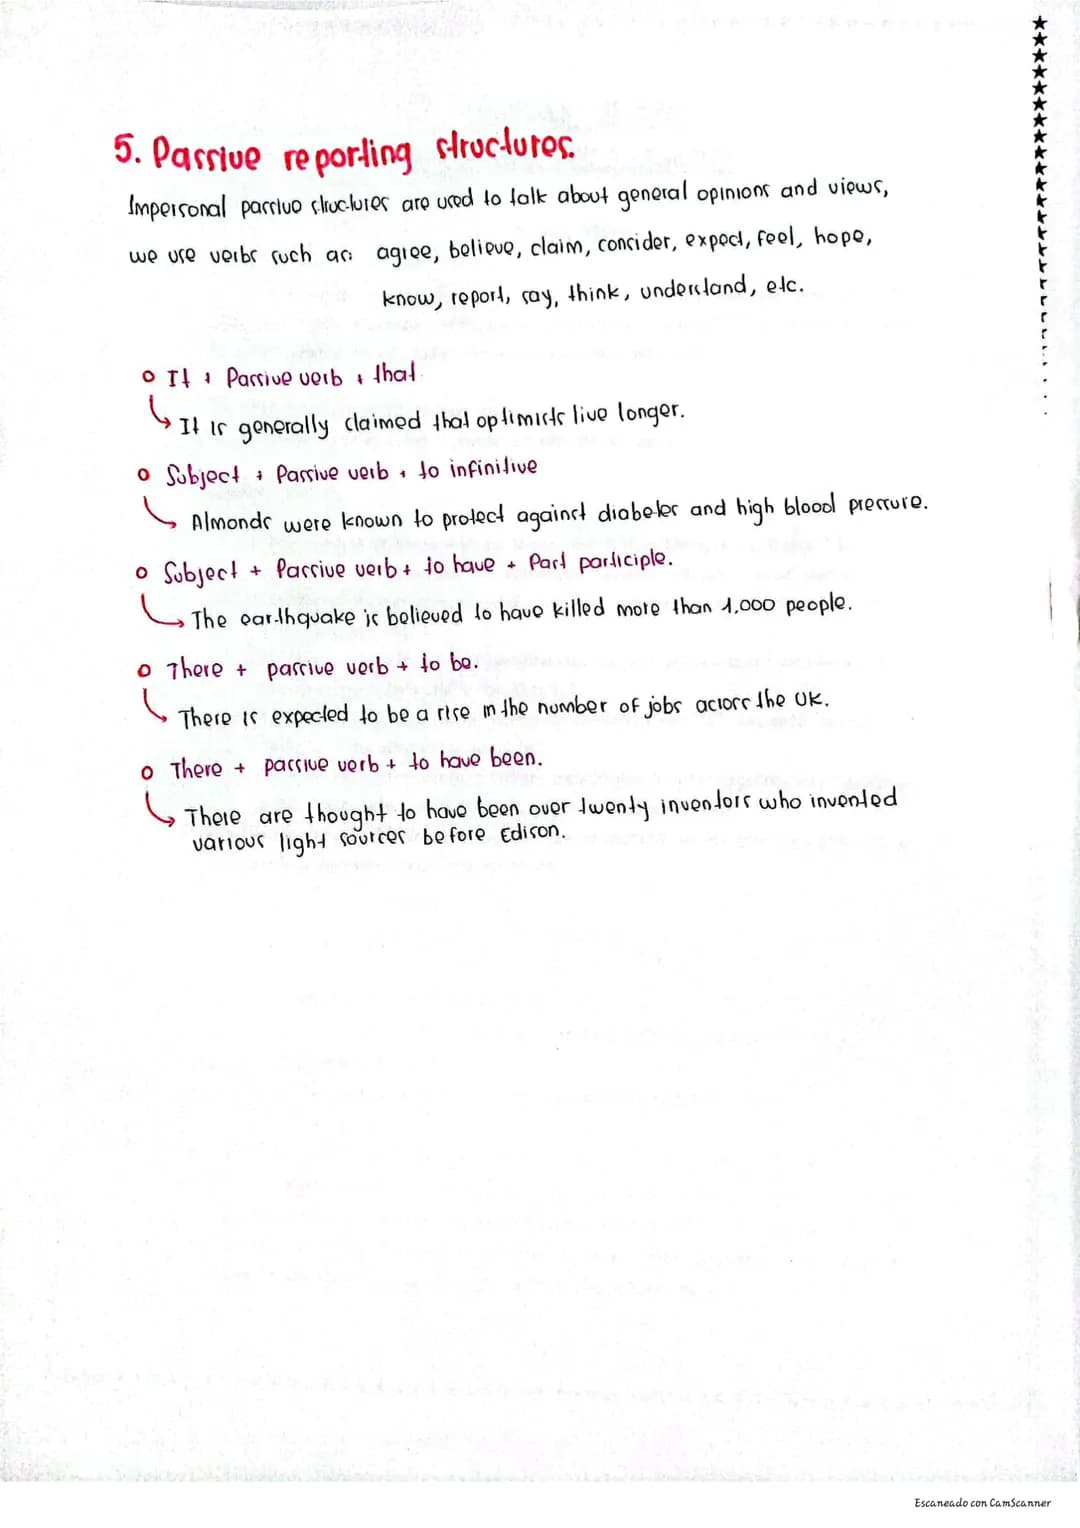 5. Passive reporting structures.
Impersonal passive structures are used to talk about general opinions and views,
we use verbs such as: agree, believe, claim, consider, expect, feel, hope,
know, report, say, think, understand, etc.
o It + Passive verb + that
It is generally claimed that optimists live longer.
o Subject + Passive verb + to infinitive
Almonds were known to protect against diabetes and high blood pressure.
o Subject + Passive verb + to have + Past participle.
The earthquake is believed to have killed more than 1,000 people.
o There + passive verb + to be.
There is expected to be a rise in the number of jobs across the UK.
o There + passive verb + to have been.
There are thought to have been over twenty inventors who invented
various light sources before Edison.
Escaneado con CamScanner